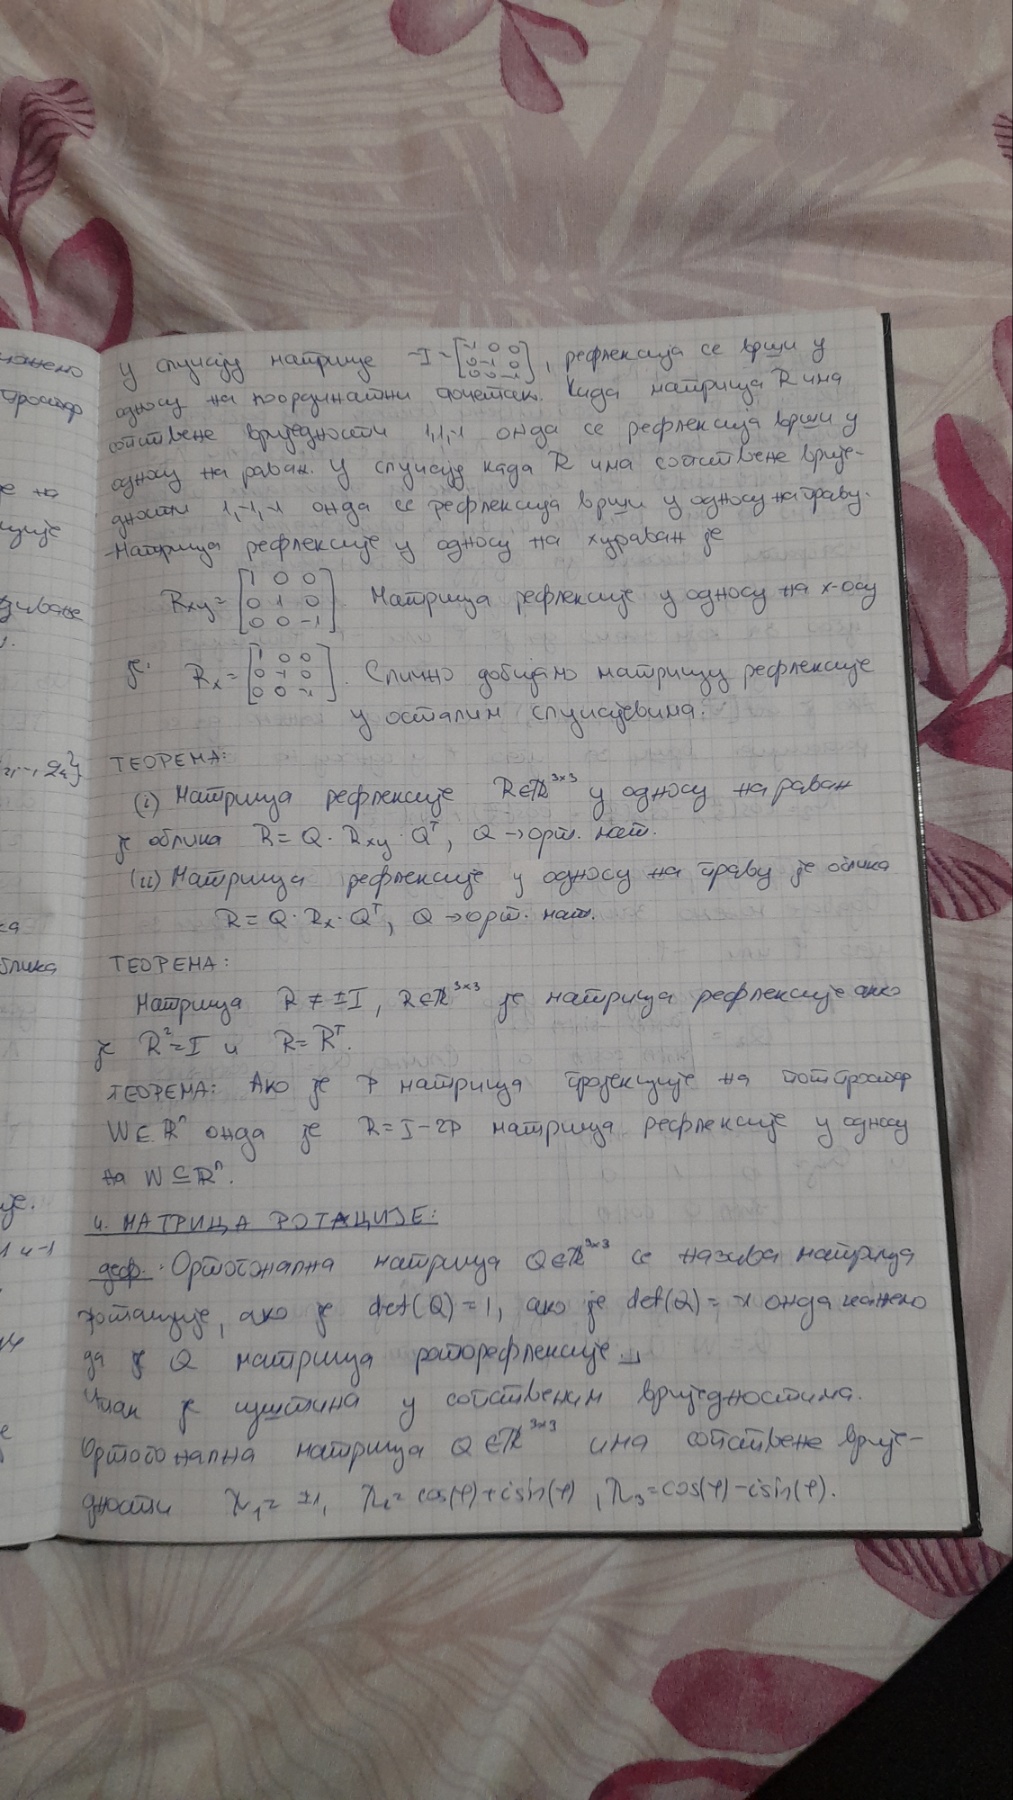 жемо
простор
е на
ције
дивање
у случају матрице -I = [-1 0 0; 0 -1 0; 0 0 -1], рефлексија се врши у
односу на координатни почетак. Када матрица R има
сопствене вриједности 1,1,-1 онда се рефлексија врши у
односу на раван. У случају када R има сопствене врије-
дности 1,-1,-1 онда се рефлексија врши у односу на праву.
-Матрица рефлексије у односу на xy раван је
Rxy = [1 0 0; 0 1 0; 0 0 -1] Матрица рефлексије у односу на x-осу
је: Rx = [1 0 0; 0 -1 0; 0 0 -1]. Слично добијамо матрицу рефлексије
у осталим случајевима.
ТЕОРЕМА:
(i) Матрица рефлексије R∈ℝ^3×3 у односу на раван
је облика R = Q · Rxy · Q^T, Q → орт. мат.
(ii) Матрица рефлексије у односу на праву је облика
R = Q · Rx · Q^T, Q → орт. мат.
ТЕОРЕМА:
Матрица R ≠ ±I, R∈ℝ^3×3 је матрица рефлексије ако
је R²=I и R=R^T.
ТЕОРЕМА: Ако је P матрица пројекције на потпростор
W∈ℝ^n онда је R=I-2P матрица рефлексије у односу
на W⊆ℝ^n.
4. МАТРИЦА РОТАЦИЈЕ:
деф. Ортогонална матрица Q∈ℝ^3×3 се назива матрица
ротације, ако је det(Q)=1, ако је det(Q)=-1 онда кажемо
да је Q матрица роторефлексије.
је суштина у сопственим вриједностима.
Ортогонална матрица Q∈ℝ^3×3 има сопствене врије-
дности λ₁= ±1, λ₂= cos(φ)+isin(φ), λ₃=cos(φ)-isin(φ).